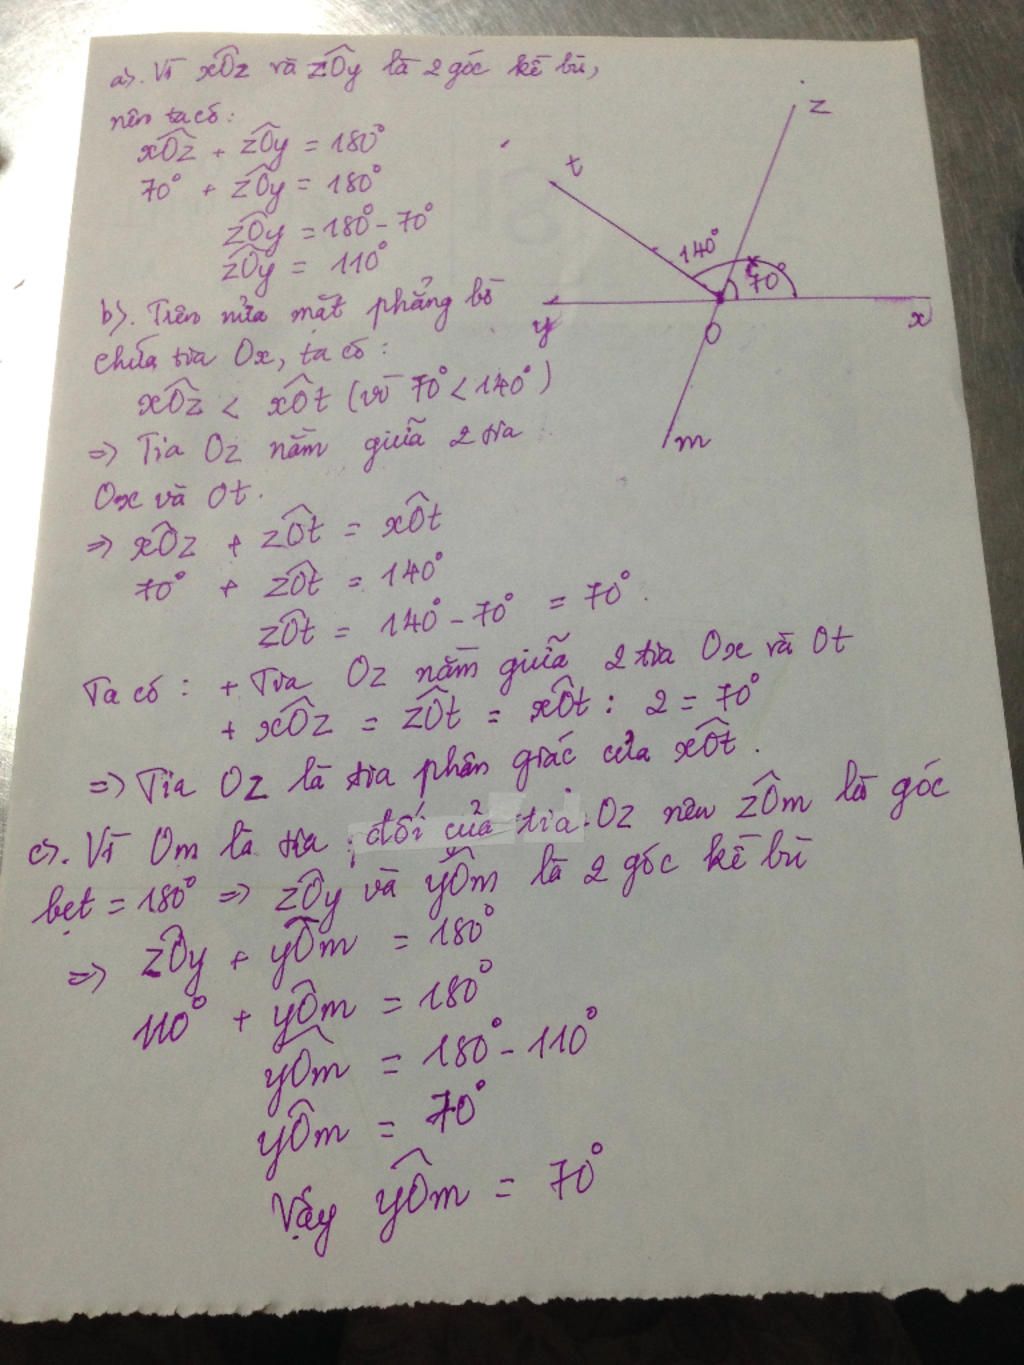 a). Vì xÔz và zÔy là 2 góc kề bù,
nên ta có:
xÔz + zÔy = 180°
70° + zÔy = 180°
zÔy = 180° - 70°
zÔy = 110°
b). Trên nửa mặt phẳng bờ
chứa tia Ox, ta có:
xÔz < xÔt (vì 70° < 140°)
=> Tia Oz nằm giữa 2 tia
Ox và Ot.
=> xÔz + zÔt = xÔt
70° + zÔt = 140°
zÔt = 140° - 70° = 70°.
Ta có: + Tia Oz nằm giữa 2 tia Ox và Ot
+ xÔz = zÔt = xÔt : 2 = 70°
=> Tia Oz là tia phân giác của xÔt.
c). Vì Om là tia đối của tia Oz nên zÔm là góc
bẹt = 180° => zÔy và yÔm là 2 góc kề bù
=> zÔy + yÔm = 180°
110° + yÔm = 180°
yÔm = 180° - 110°
yÔm = 70°
Vậy yÔm = 70°
z
t
140°
70°
y
O
x
m